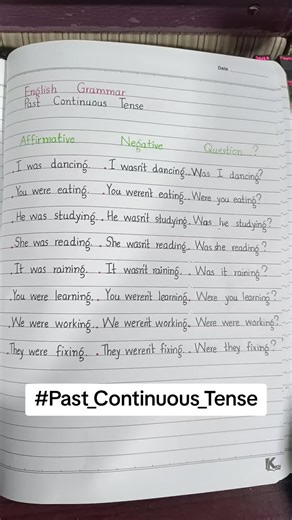 Date
English Grammar
Past Continuous Tense
Affirmative Negative Question ?
.I was dancing. .I wasn't dancing. Was I dancing?
.You were eating. .You weren't eating. Were you eating?
.He was studying. .He wasn't studying. Was he studying?
.She was reading. .She wasn't reading. Was she reading?
.It was raining. .It wasn't raining. Was it raining?
.You were learning. .You weren't learning. Were you learning?
.We were working. .We weren't working. Were were working?
.They were fixing. .They weren't fixing. Were they fixing?
#Past_Continuous_Tense